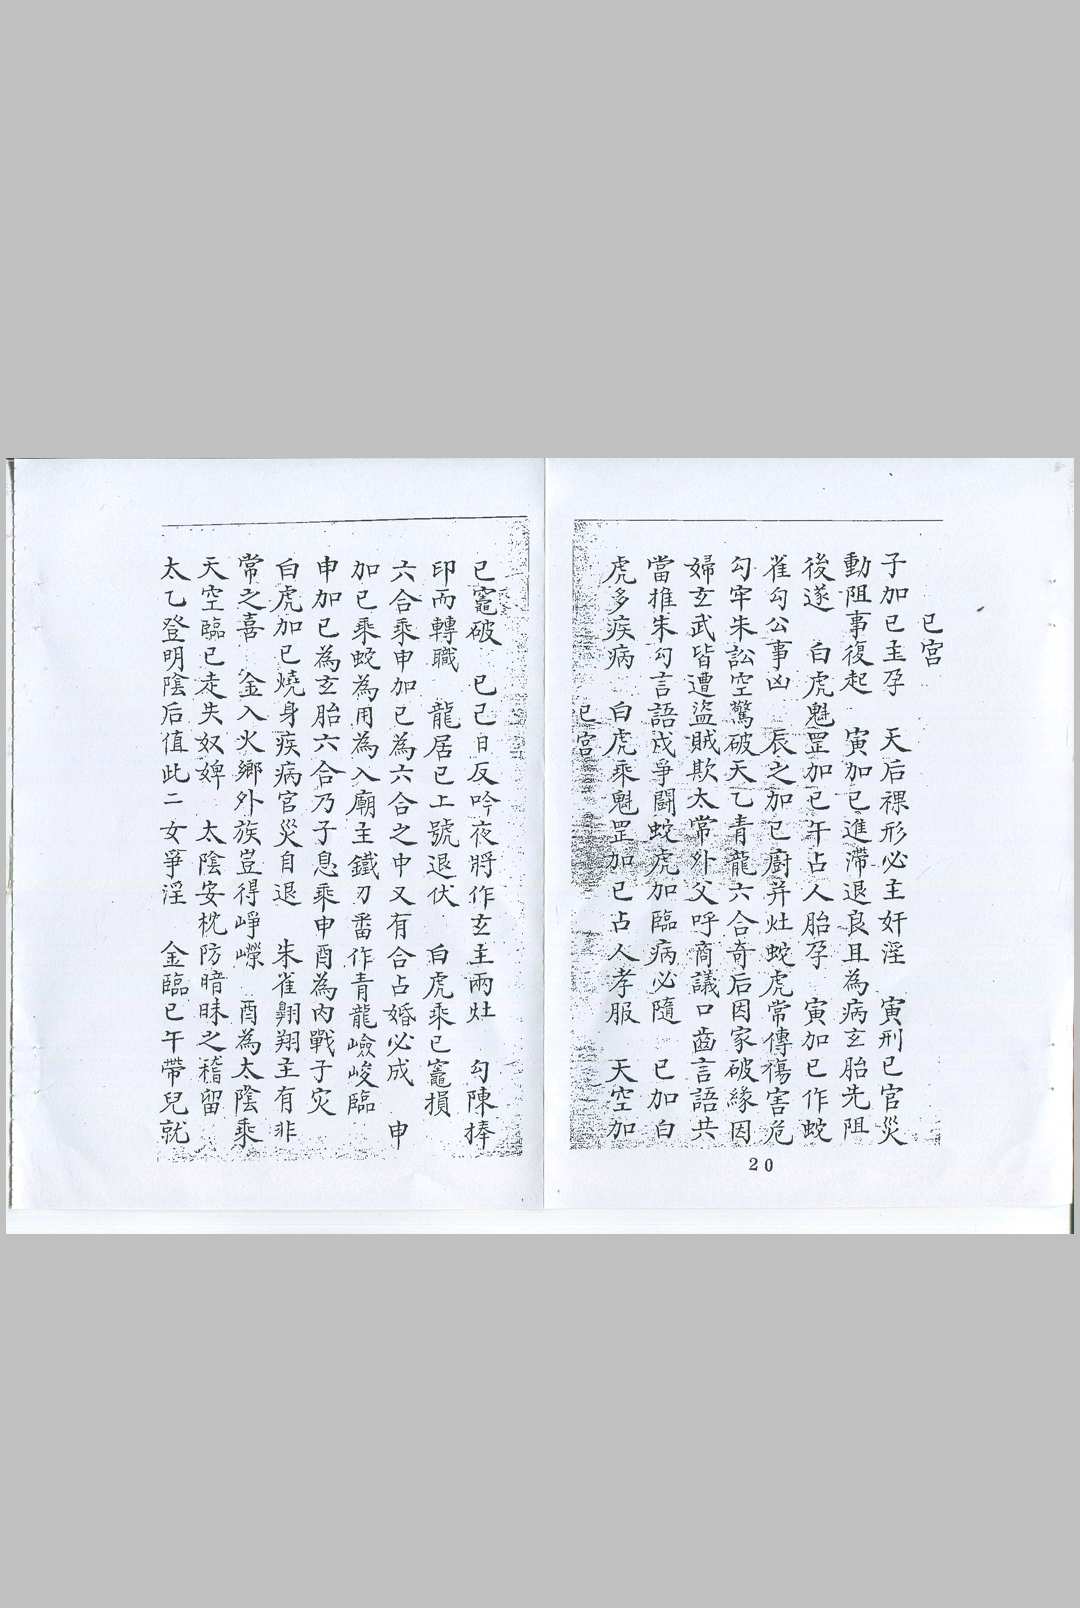 巳宮
子加巳主孕　天后裸形必主奸淫　寅刑巳官災
動阻事復起　寅加巳進滯退良且為病玄胎先阻
後遂　白虎魁罡加巳午占人胎孕　寅加巳作蛇
雀勾公事凶　辰之加巳廚并灶蛇虎常傳傷害危
勾牢朱訟空驚破天乙青龍六合奇后因家破緣因
婦玄武皆遭盜賊欺太常外父呼商議口齒言語共
當推朱勾言語戍爭鬪蛇虎加臨病必隨　巳加白
虎多疾病　白虎乘魁罡加巳占人孝服　天空加
巳宮
20
巳竈破　巳己日反吟夜將作玄主兩灶　勾陳捧
印而轉職　龍居巳上號退伏　白虎乘巳竈損
六合乘申加巳為六合之中又有合占婚必成　申
加巳乘蛇為用為入廟主鐵刃畨作青龍嶮峻臨
申加巳為玄胎六合乃子息乘申酉為內戰子灾
白虎加巳燒身疾病官災自退　朱雀翱翔主有非
常之喜　金入火鄉外族豈得崢嶸　酉為太陰乘
天空臨巳走失奴婢　太陰安枕防暗昧之稽留
太乙登明陰后值此二女爭淫　金臨巳午帶兒就